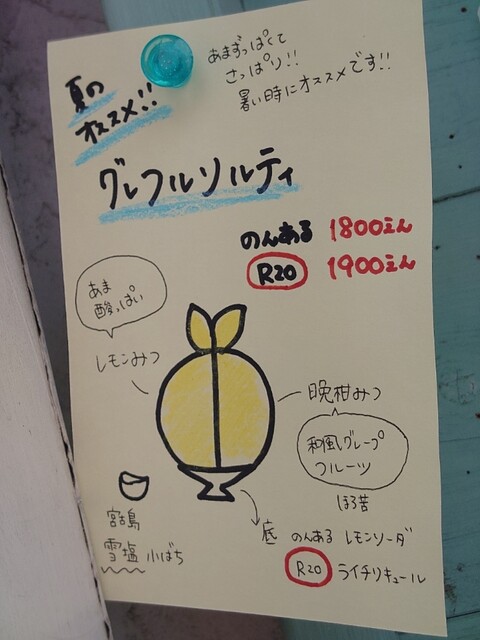 夏の
オススメ!!
あまずっぱくて
さっぱり!!
暑い時にオススメです!!
グレフルソルティ
のんある 1800えん
R20 1900えん
あま
酸っぱい
レモンみつ
晩柑みつ
和風グレープ
フルーツ
ほろ苦
宮古島
雪塩 小ばち
底 のんある レモンソーダ
R20 ライチリキュール